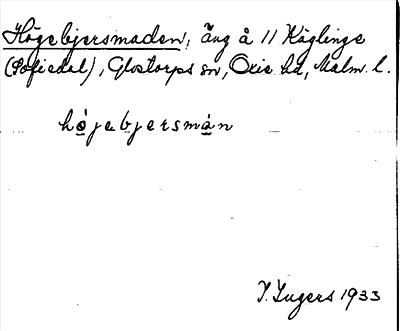 Högebjersmaden, äng å 11 Käglinge
(Sofiedal), Glostorps sn, Oxie hd, Malm. l.
höjebjersmån
I. Ingers 1933